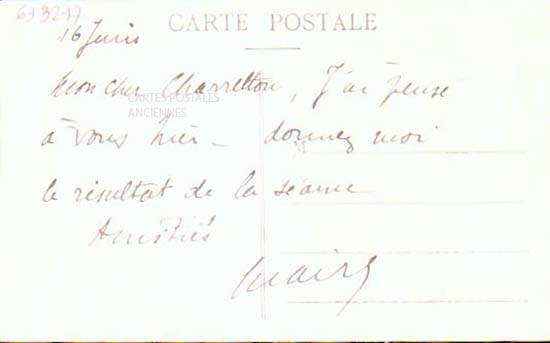 63 3217
CARTE POSTALE
16 Juin
Mon cher Charretton, J'ai pensé
CARTES POSTALES
ANCIENNES
à vous hier - donnez moi
le résultat de la séance
Amitiés